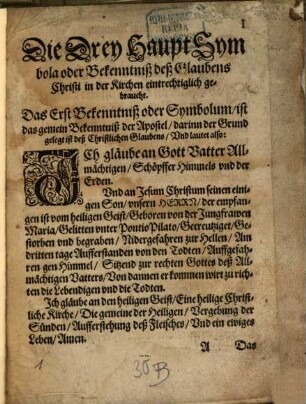 BIBLIOTHECA
REGIA
1
Die Drey Haupt Sym
bola oder Bekenntniß deß Glaubens
Christi in der Kirchen eintrechtiglich ge-
braucht.
Das Erst Bekenntniß oder Symbolum/ist
das gemein Bekenntnuß der Apostel/darinn der Grund
gelegt ist deß Christlichen Glaubens/Vnd lautet also:
ICh gläube an Gott Vatter All-
mächtigen/Schöpffer Himmels vnd der
Erden.
Vnd an Jesum Christum seinen eini-
gen Son/vnsern HERRN/der empfan-
gen ist vom heiligen Geist/Geboren von der Jungfrawen
Maria/Gelitten vnter Pontio Pilato/Gecreutziget/Ge-
storben vnd begraben/Nidergefahren zur Hellen/Am
dritten tage Aufferstanden von den Todten/Auffgefah-
ren gen Himmel/Sitzend zur rechten Gottes deß All-
mächtigen Vatters/Von dannen er kommen wirt zu rich-
ten die Lebendigen vnd die Todten.
Ich gläube an den heiligen Geist/Eine heilige Christ-
liche Kirche/Die gemeine der Heiligen/Vergebung der
Sünden/Aufferstehung deß Fleisches/Vnd ein ewiges
Leben/Amen.
A Das
1